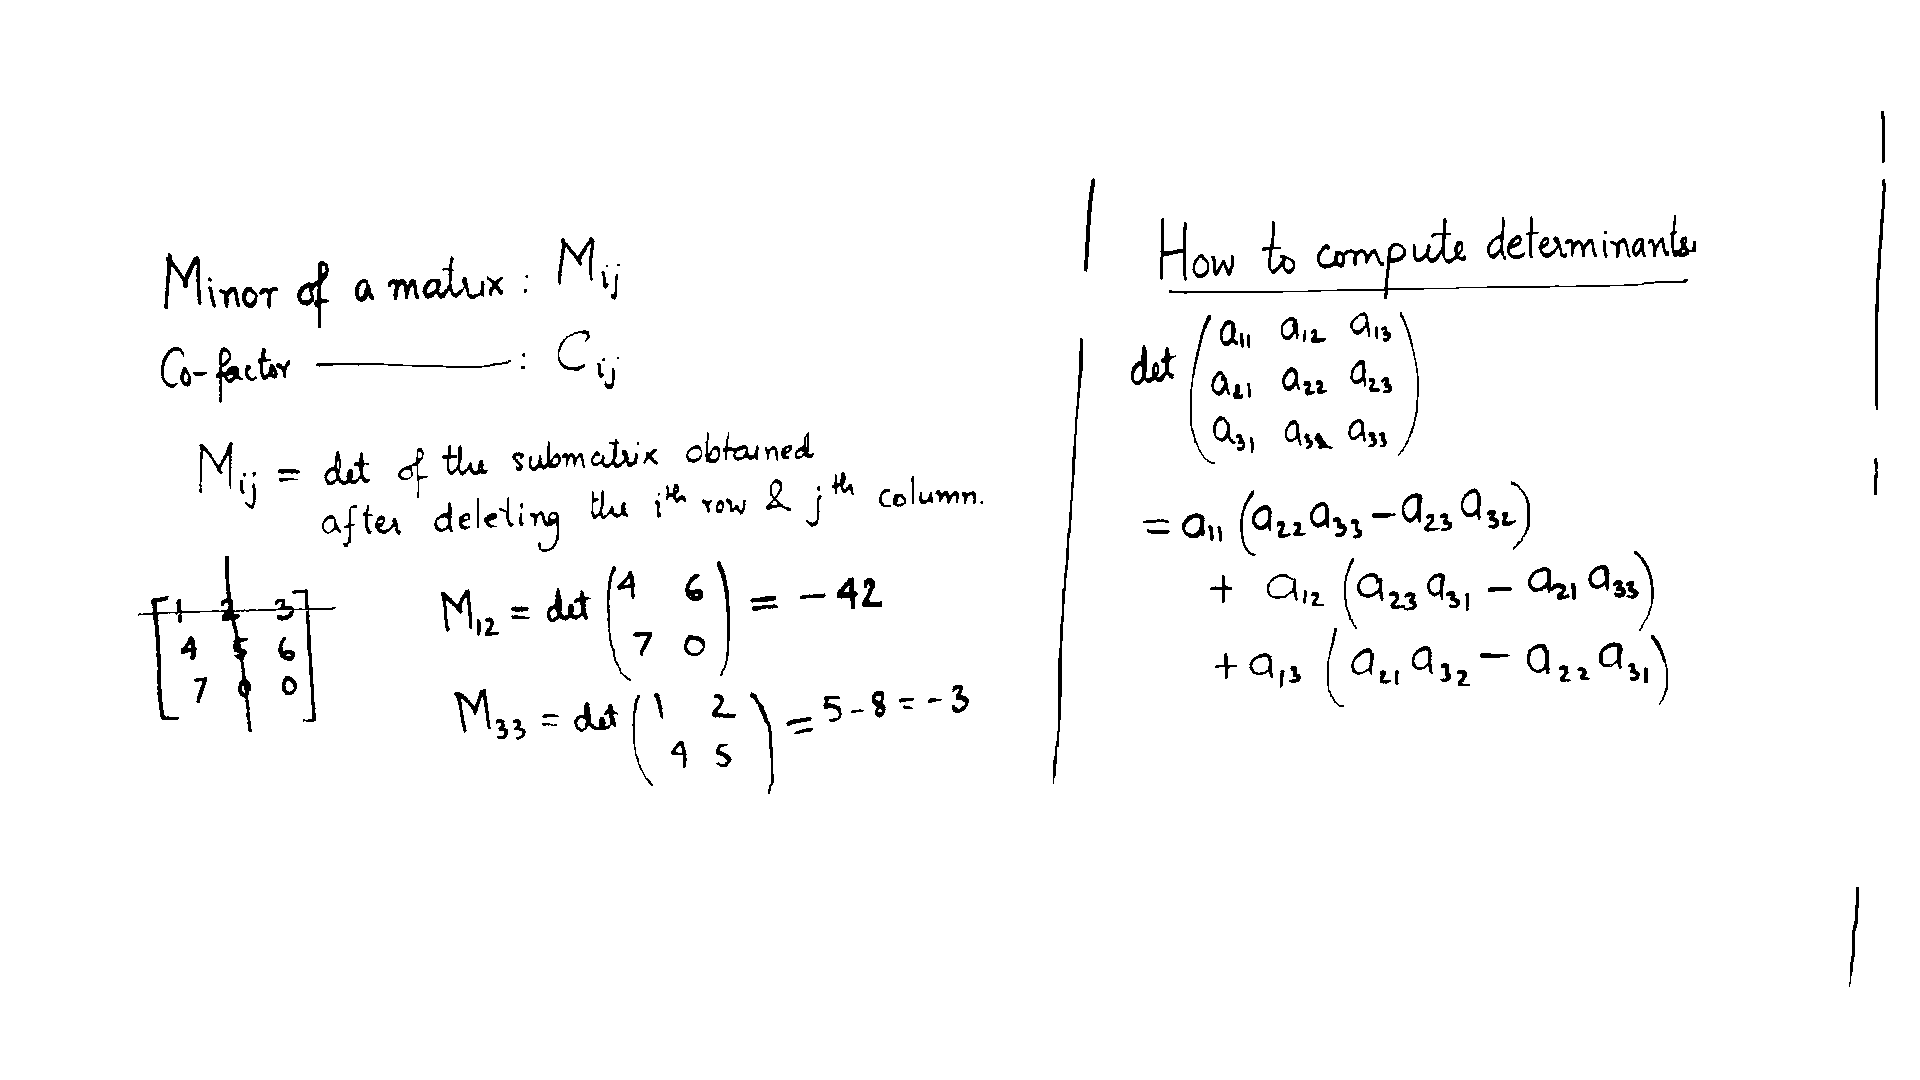 Minor of a matrix : M_ij
Co-factor ——— : C_ij
M_ij = det of the submatrix obtained
after deleting the i^th row & j^th column.
[1 2 3
4 5 6
7 0]
M_12 = det (4 6
7 0) = -42
M_33 = det (1 2
4 5) = 5-8 = -3
How to compute determinants
det (a_11 a_12 a_13
a_21 a_22 a_23
a_31 a_32 a_33)
= a_11 (a_22 a_33 - a_23 a_32)
+ a_12 (a_23 a_31 - a_21 a_33)
+ a_13 (a_21 a_32 - a_22 a_31)